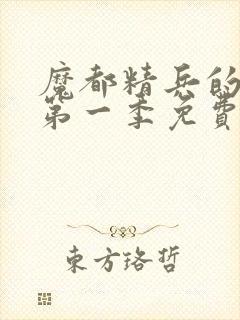 魔都精兵的
第一季免費
東方珞哲